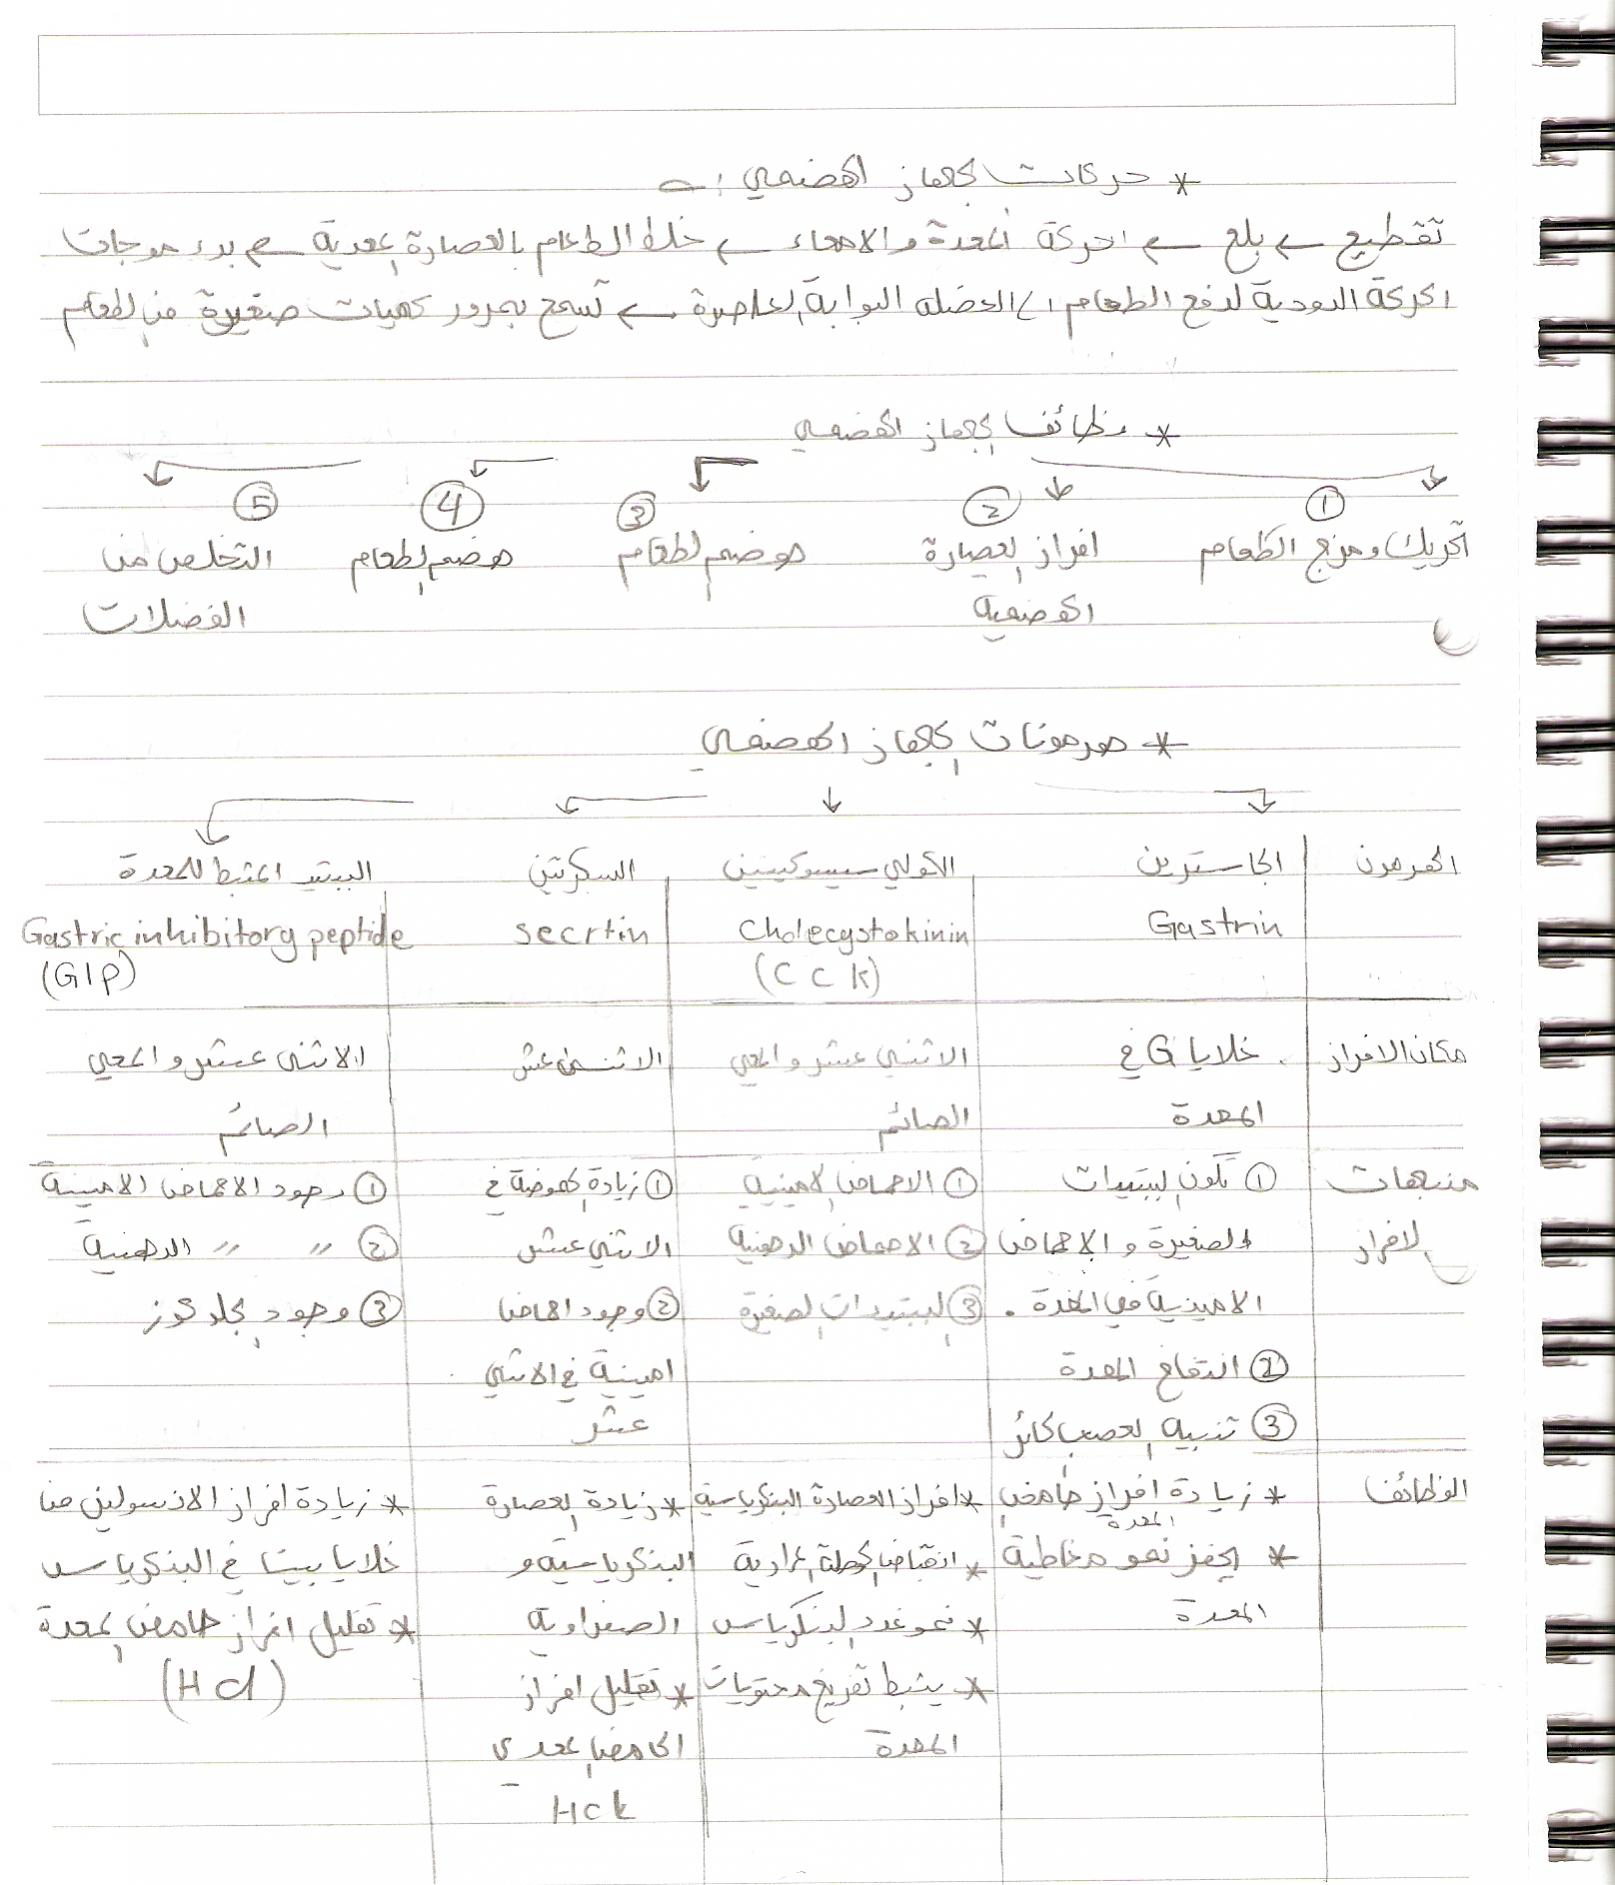 * حركات الجهاز الهضمي :-
تقطيع ← بلع ← حركة المعدة والامعاء ← خلط الطعام بالعصارة المعدية ← بدء موجات
الحركة الدودية لدفع الطعام الى العضله البوابة العاصرة ← تسمح بمرور كميات صغيرة من الطعام
* وظائف الجهاز الهضمي
① ② ③ ④ ⑤
تحريك ومزج الطعام افراز العصارة هوضم الطعام هضم الطعام التخلص من
الهضمية الفضلات
* هرمونات الجهاز الهضمي
الهرمون الجاسترين الكولي سيسوكينين السكرتين الببتيد المثبط للمعدة
Gastrin Cholecystokinin secrtin Gastric inhibitory peptide
(CCK) (GIP)
مكان الافراز خلايا G في الاثني عشر والمعي الاثنى عشر الاثنى عشر والمعي
المعدة الصائم الصائم
منبهات ① تكون الببتيدات ① الاحماض الامينية ① زيادة الحموضة في ① وجود الاحماض الامينية
الافراز الصغيرة والاحماض ② الاحماض الدهنية الاثني عشر ② " " الدهنية
الامينية في المعدة . ③ الببتيدات الصغيرة ② وجود احماض ③ وجود الجلوكوز
② انتفاخ المعدة امينية في الاثني
③ تنبيه العصب الحائر عشر
الوظائف * زيادة افراز حامض المعدة * افراز العصارة البنكرياسية * زيادة العصارة * زيادة افراز الانسولين من
* يحفز نمو مخاطية * انقباض الحوصلة المرارية البنكرياسية و خلايا بيتا في البنكرياس
المعدة * نمو غدد البنكرياس الصفراوية * تقليل افراز حامض المعدة
* يثبط تفريغ محتويات * تقليل افراز (HCl)
المعدة الحامض المعدي
HCl